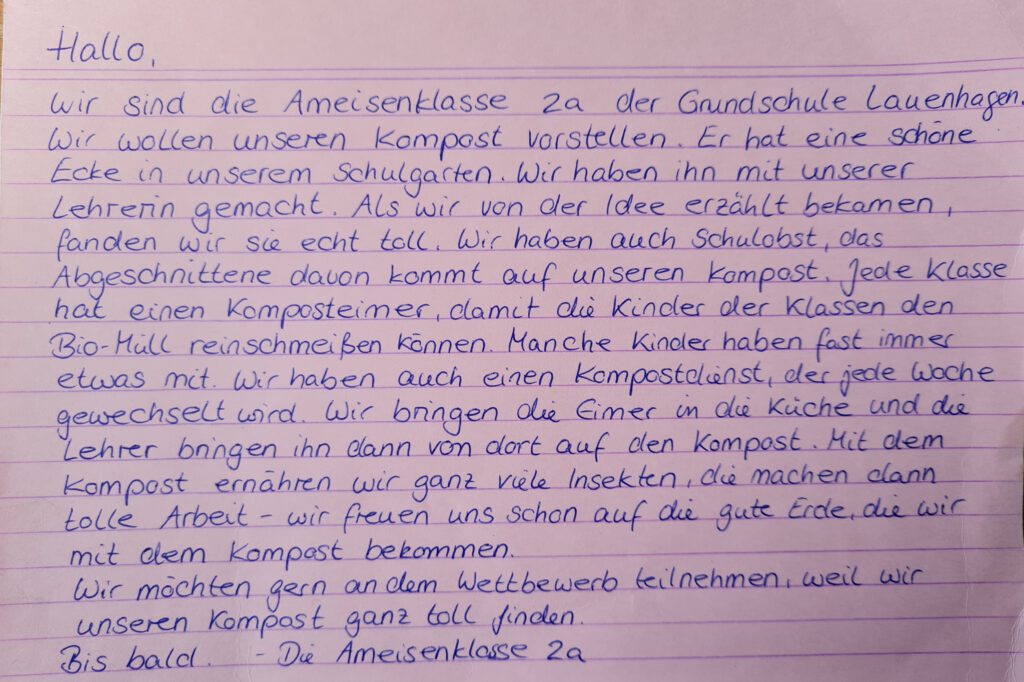 Hallo,
wir sind die Ameisenklasse 2a der Grundschule Lauenhagen.
Wir wollen unseren Kompost vorstellen. Er hat eine schöne
Ecke in unserem Schulgarten. Wir haben ihn mit unserer
Lehrerin gemacht. Als wir von der Idee erzählt bekamen,
fanden wir sie echt toll. Wir haben auch Schulobst, das
Abgeschnittene davon kommt auf unseren Kompost. Jede Klasse
hat einen Komposteimer, damit die Kinder der Klassen den
Bio-Müll reinschmeißen können. Manche Kinder haben fast immer
etwas mit. Wir haben auch einen Kompostdienst, der jede Woche
gewechselt wird. Wir bringen die Eimer in die Küche und die
Lehrer bringen ihn dann von dort auf den Kompost. Mit dem
Kompost ernähren wir ganz viele Insekten, die machen dann
tolle Arbeit - wir freuen uns schon auf die gute Erde, die wir
mit dem Kompost bekommen.
Wir möchten gern an dem Wettbewerb teilnehmen, weil wir
unseren Kompost ganz toll finden.
Bis bald. - Die Ameisenklasse 2a